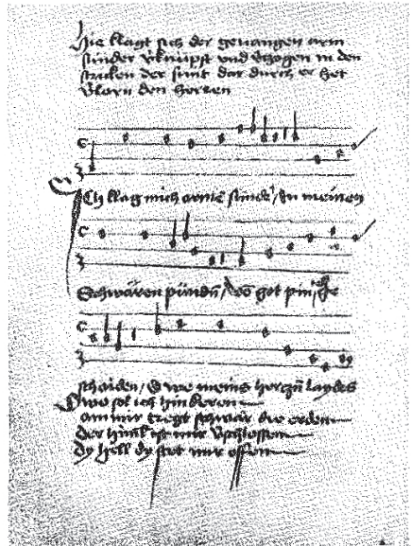 hie klagt sich der geuangen arm
sünder vknüpft vnd vzogen in den
stricken der sünt dar durch er het
vlorn den herren
Ich klag mich armē sündē / In meinen
Schwären pündn / das got pin
schaiden / O we meins herczn laydes
O wo sol ich hin keren
am mir tregt schwär die erden
der himl ist mir vschlossen
dy hell dy stet mir offen